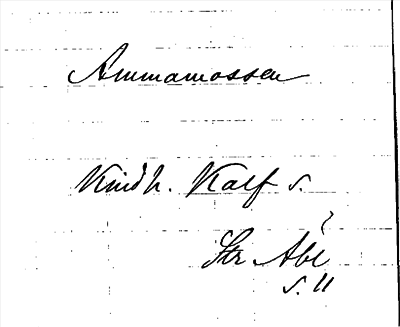 Ammamossen
Kind h. Kalf s.
Str Åbe
s. 11